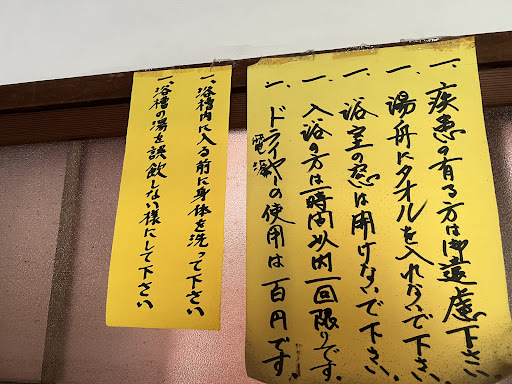 一、疾患の有る方は御遠慮下さい
一、湯舟にタオルを入れないで下さい
一、浴室の窓は開けないで下さい。
一、入浴の方は一時間以内一回限りです。
一、ドライヤーの使用は百円です。
電源
一、浴槽内に入る前に身体を洗って下さい
一、浴槽の湯を誤飲しない様にして下さい